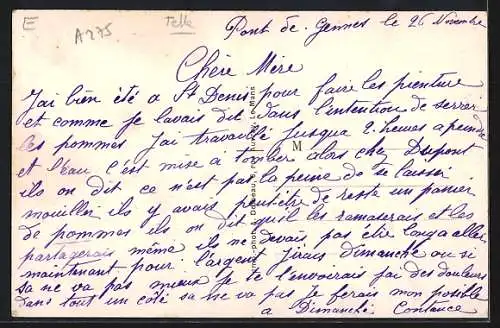 E
A275
Telle
Pont de Gennes le 26 Novembre
Chère Mère
J'ai bien été a St Denis pour faire les pienture
et comme je lavais dit dans l'intention de serrer
les pommes j'ai travaillé jusqua 2 heures a peindre
et l'eau c'est mise a tomber alors chez Dupont
ils on dit ce n'est pas la peine de se laisser
mouiller ils y avais peut être de reste un panier
de pommes ils on dit qu'il les ramaserais et les
partagerais même ils ne devais pas être long a aller
maintenant pour l'argent j'irais dimanche ou si
sa ne va pas mieux je te l'envoirais j'ai des douleurs
dans tout un côté sa ne va pas je ferais mon posible
a Dimanche Contance
M
Le Mans